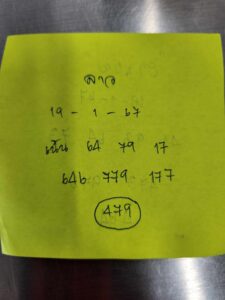 ลาว
19 - 1 - 67
เน้น 64 79 17
646 779 177
479